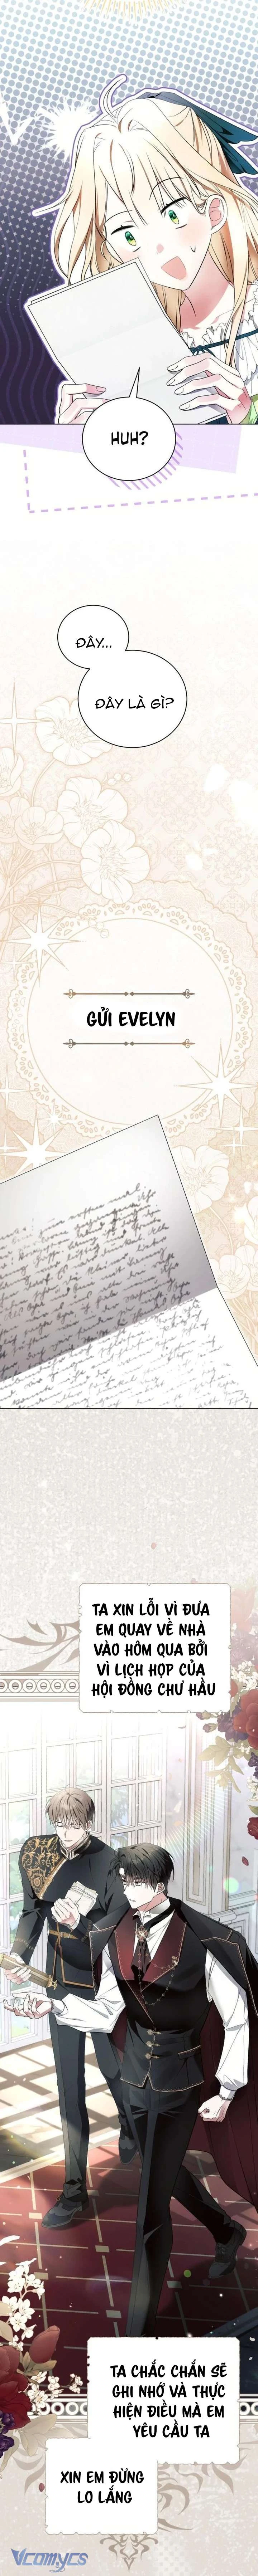 HUH?
ĐÂY...
ĐÂY LÀ GÌ?
GỬI EVELYN
TA XIN LỖI VÌ ĐƯA
EM QUAY VỀ NHÀ
VÀO HÔM QUA BỞI
VÌ LỊCH HỌP CỦA
HỘI ĐỒNG CHƯ HẦU
TA CHẮC CHẮN SẼ
GHI NHỚ VÀ THỰC
HIỆN ĐIỀU MÀ EM
YÊU CẦU TA
XIN EM ĐỪNG
LO LẮNG
Vcomycs